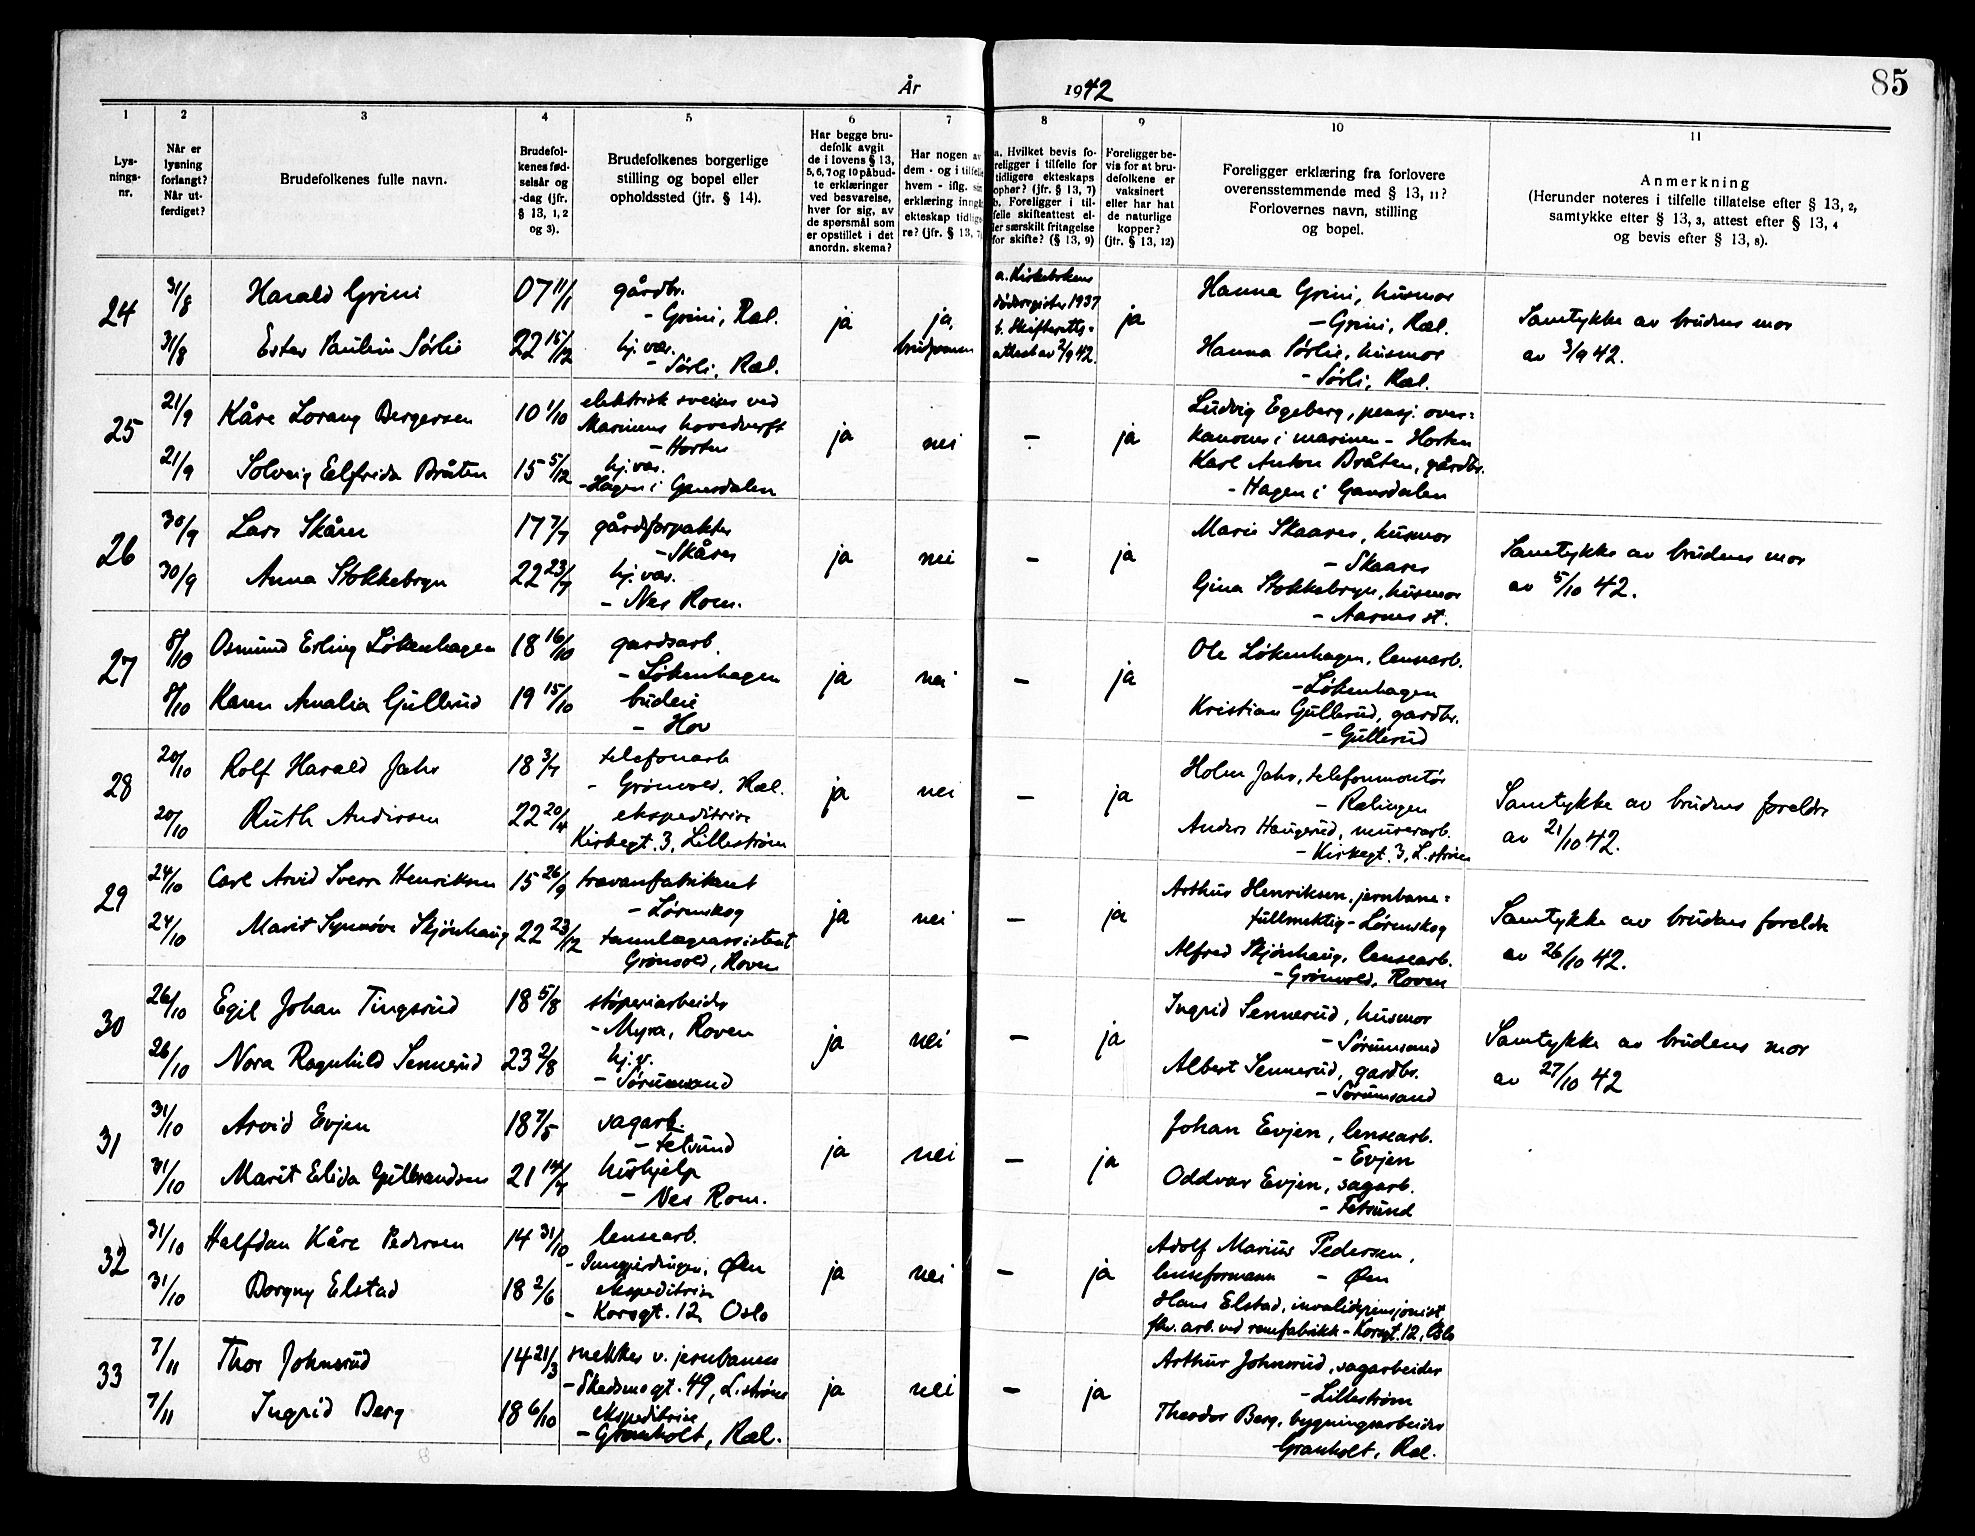 85
År 1942
1
Lys-
nings-
nr.
2
Når er
lysning
forlangt?
Når ut-
ferdiget?
3
Brudefolkenes fulle navn.
4
Brudefol-
kenes fød-
selsår og
-dag (jfr.
§ 13, 1, 2
og 3).
5
Brudefolkenes borgerlige
stilling og bopel eller
opholdssted (jfr. § 14).
6
Har begge bru-
defolk avgit
de i lovens § 13,
5, 6, 7 og 10 påbud-
te erklæringer
ved besvarelse,
hver for sig, av
de spørsmål som
er opstillet i det
anordn. skema?
7
Har nogen av
dem - og i tilfelle
hvem - iflg. sin
erklæring inngå
ekteskap tidlige-
re? (jfr. § 13, 7)
8
a. Hvilket bevis fo-
religger i tilfelle for
tidligere ekteskaps
ophør? (jfr. § 13, 7)
b. Foreligger i til-
felle skifteattest el-
ler særskilt fritagelse
for skifte? (§ 13, 9)
9
Foreligger be-
vis for at bru-
defolkene er
vaksinert
eller har hat
de naturlige
kopper?
(jfr. § 13, 12)
10
Foreligger erklæring fra forlovere
overensstemmende med § 13, 11?
Forlovernes navn, stilling
og bopel.
11
Anmerkning
(Herunder noteres i tilfelle tillatelse efter § 13, 2,
samtykke efter § 13, 3, attest efter § 13, 4
og bevis efter § 13, 8).
24
31/8 Harald Grini 07 11/1 gårdbr.
- Grini, Ræl.
31/8 Ester Pauline Sørlie 22 15/12 hj.vær.
- Sørli, Ræl.
ja
ja,
brudgommen
a. Kirkebokens
dødsregister 1937
b. Skifteretts-
attest av 2/9 42.
ja
Hanna Grini, husmor
- Grini, Ræl.
Hanna Sørlie, husmor
- Sørli, Ræl.
Samtykke av brudens mor
av 3/9 42.
25
21/9 Kåre Lorang Bergersen 10 1/10 elektrisk sveiser ved
Marinens hovedverft
- Horten
21/9 Solveig Elfrida Bråten 15 5/12 hj.vær.
- Hagen i Gansdalen
ja
nei
-
ja
Ludvig Egeberg, pensj. over-
kanoner i marinen - Horten
Karl Anton Bråten, gårdbr.
- Hagen i Gansdalen
26
30/9 Lars Skåren 17 7/7 gårdsforpakter
- Skåren
30/9 Anna Stokkebryn 22 23/7 hj.vær.
- Nes Rom.
ja
nei
-
ja
Marie Skaaren, husmor
- Skaaren
Gina Stokkebryn, husmor
- Aarnes st.
Samtykke av brudens mor
av 5/10 42.
27
8/10 Osmund Erling Løkenhagen 18 16/10 gardsarb.
- Løkenhagen
8/10 Karen Amalia Gullerud 19 15/10 budeie
- Hov
ja
nei
-
ja
Ole Løkenhagen, lensearb.
- Løkenhagen
Kristian Gullerud, gardbr.
- Gullerud
28
20/10 Rolf Harald Jahr 18 3/7 telefonarb
- Grønvold, Ræl.
20/10 Ruth Andersen 22 20/4 ekspeditrise
Kirkegt. 3, Lillestrøm
ja
nei
-
ja
Holm Jahr, telefonmontør
- Rælingen
Anders Haugerud, murerarb.
- Kirkegt. 3, L.strøm
Samtykke av brudens foreldre
av 21/10 42.
29
24/10 Carl Arvid Sverre Henriksen 15 26/9 travarefabrikant
- Lørenskog
24/10 Marit Synnøve Skjønhaug 22 23/12 tannlægeassistent
Grønvold, Roven
ja
nei
-
ja
Arthur Henriksen, jernbane-
fullmektig - Lørenskog
Alfred Skjønhaug, lensearb.
- Grønvold, Roven
Samtykke av brudens foreldre
av 26/10 42.
30
26/10 Egil Johan Tingsrud 18 5/8 støperiarbeider
- Myra, Roven
26/10 Nora Ragnhild Sennerud 23 2/8 hj.v.
- Sørumsand
ja
nei
-
ja
Ingrid Sennerud, husmor
- Sørumsand
Albert Sennerud, gardbr.
- Sørumsand
Samtykke av brudens mor
av 27/10 42
31
31/10 Arvid Evjen 18 7/5 sagarb.
- Fetsund
31/10 Marit Elida Gulbrandsen 21 14/7 hushjelp
- Nes Rom.
ja
nei
-
ja
Johan Evjen, lensearb.
- Evjen
Oddvar Evjen, sagarb.
- Fetsund
32
31/10 Halfdan Kåre Pedersen 14 31/10 lensearb.
- Øen
31/10 Borgny Elstad 18 2/6 ekspeditrise
- Korsgt. 12, Oslo
ja
nei
-
ja
Adolf Marius Pedersen,
lenseformann - Øen
Hans Elstad, invalidepensjonist,
fhv. arb. ved remfabrikk - Korsgt. 12, Oslo
33
7/11 Thor Johnsrud 14 21/3 snekker v. jernbanen
- Skedsmogt. 49, L.strøm
7/11 Ingrid Berg 18 6/10 ekspeditrise
- Granholt, Ræl.
ja
nei
-
ja
Arthur Johnsrud, sagarbeider
- Lillestrøm
Theodor Berg, bygningsarbeider
Granholt, Ræl.